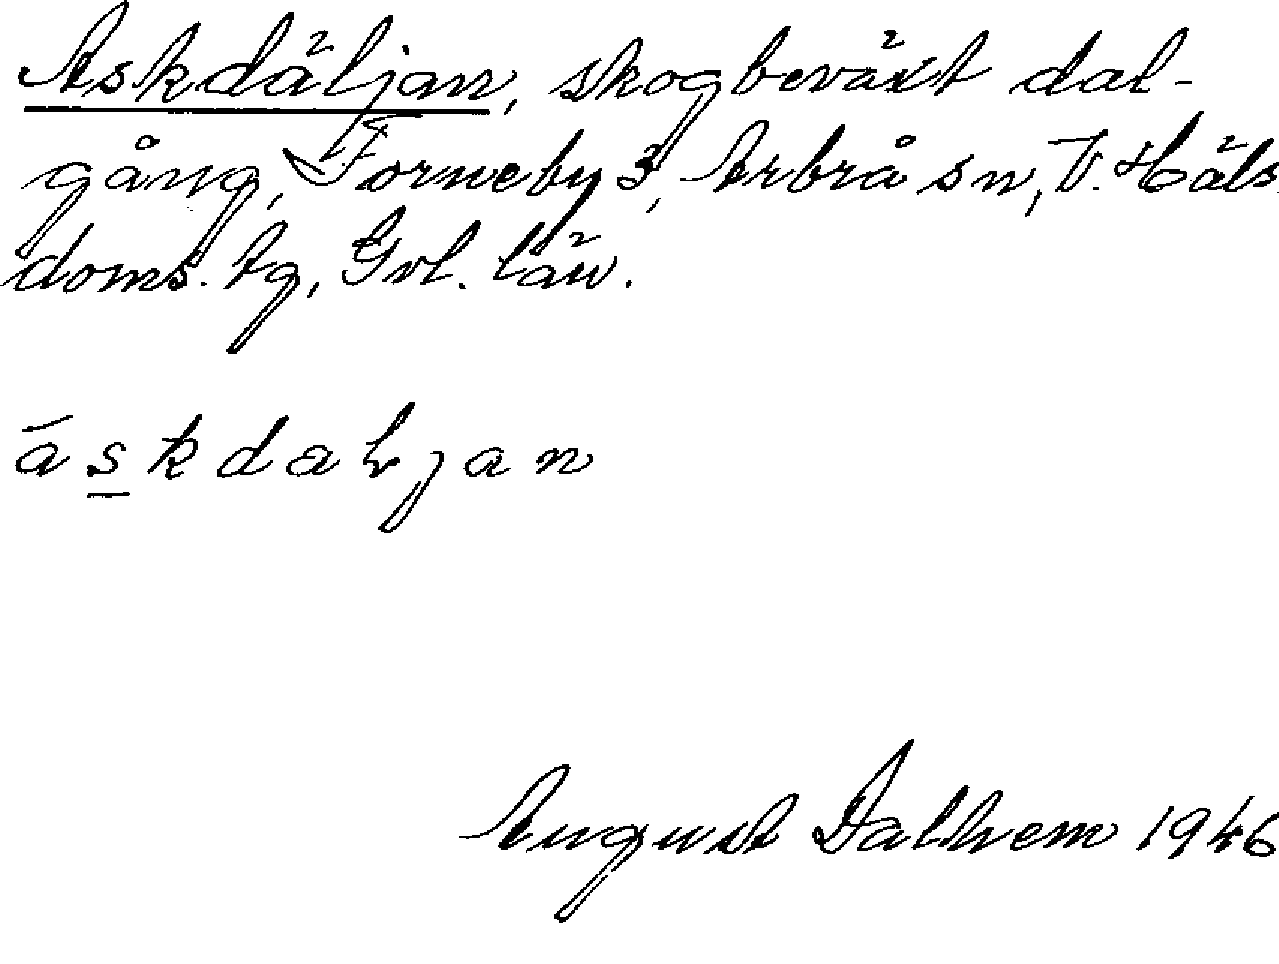 Askdäljan, skogbeväxt dal-
gång, Forneby 3, Arbrå sn, V. Häls.
doms. tg, Gvl. län.
áskdaljan
August Dalhem 1946